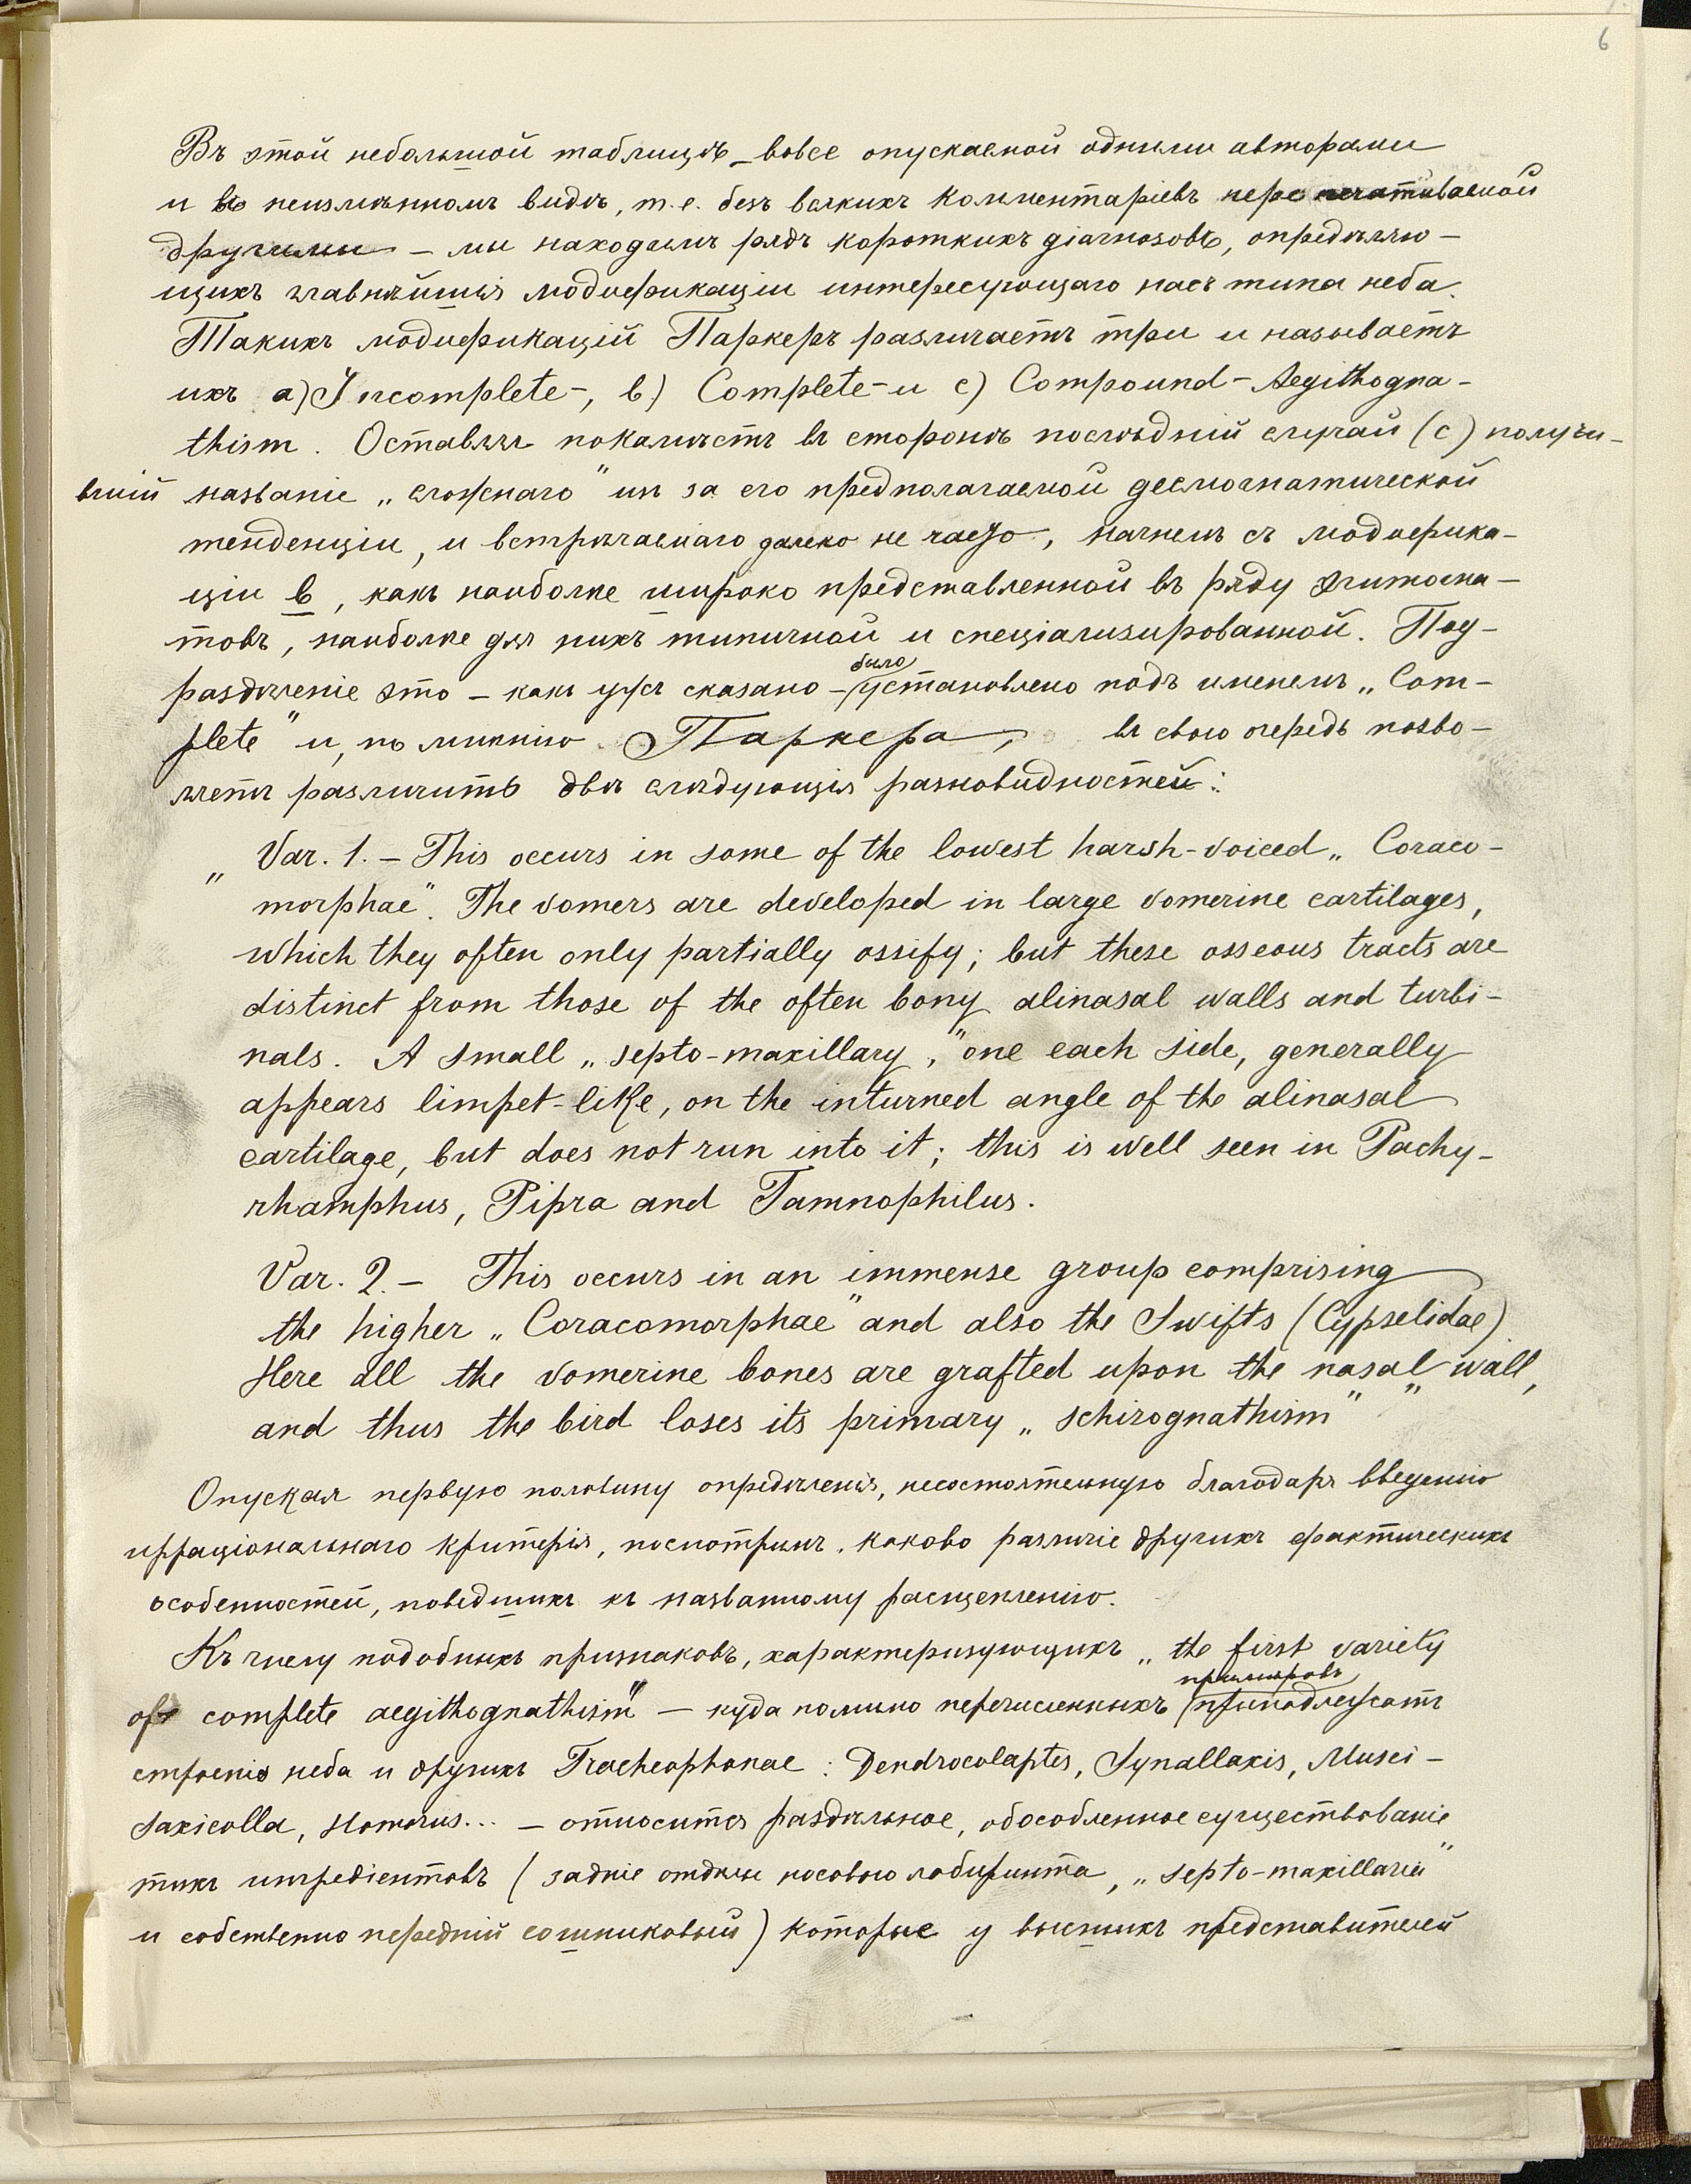 6
Въ этой небольшой таблицѣ – вовсе опускаемой одними авторами
и въ неизмѣнномъ видѣ, т.е. безъ всякихъ комментаріевъ перепечатываемой
другими – мы находимъ рядъ короткихъ діагнозовъ, опредѣляю-
щихъ главнѣйшія модификаціи интересующаго насъ типа неба.
Такихъ модификацій Паркеръ различаетъ три и называетъ
ихъ a) Incomplete-, b) Complete- и c) Compound-Aegithogna-
thism. Оставляя покамѣстъ въ сторонѣ послѣдній случай (c) получи-
вшій названіе „сложнаго" из за его предполагаемой десмогнатической
тенденціи, и встрѣчаемаго далеко не часто, начнемъ съ модифика-
ціи b, какъ наиболѣе широко представленной въ ряду эгитогна-
товъ, наиболѣе для нихъ типичной и спеціализированной. Под-
раздѣленіе это – какъ ужъ сказано – было установлено подъ именемъ „Com-
plete" и, по мнѣнію Паркера, въ свою очередь позво-
ляетъ различить двѣ слѣдующія разновидностей:
„Var. 1. – This occurs in some of the lowest harsh-voiced „Coraco-
morphae". The vomers are developed in large vomerine cartilages,
which they often only partially ossify; but these osseous tracts are
distinct from those of the often bony alinasal walls and turbi-
nals. A small „septo-maxillary", one each side, generally
appears limpet-like, on the inturned angle of the alinasal
cartilage, but does not run into it; this is well seen in Pachy-
rhamphus, Pipra and Tamnophilus.
Var. 2. – This occurs in an immense group comprising
the higher „Coracomorphae" and also the Swifts (Cypselidae).
Here all the vomerine bones are grafted upon the nasal wall,
and thus the bird loses its primary „schizognathism" "
Опуская первую половину опредѣленія, несостоятельную благодаря введенію
ирраціональнаго критерія, посмотримъ, каково различіе другихъ фактическихъ
особенностей, поведшихъ къ названному расщепленію.
Къ числу подобныхъ признаковъ, характеризующихъ „the first variety
of complete aegithognathism" – куда помимо перечисленныхъ примѣровъ принадлежатъ
строенія неба и другихъ Tracheophonae: Dendrocolaptes, Synallaxis, Musci-
saxicolla, Homorus... – относится раздѣльное, обособленное существованіе
тѣхъ ингредіентовъ (задніе отдѣлы носового лабиринта, „septo-maxillaria"
и собственно передній сошниковый) которые у высшихъ представителей